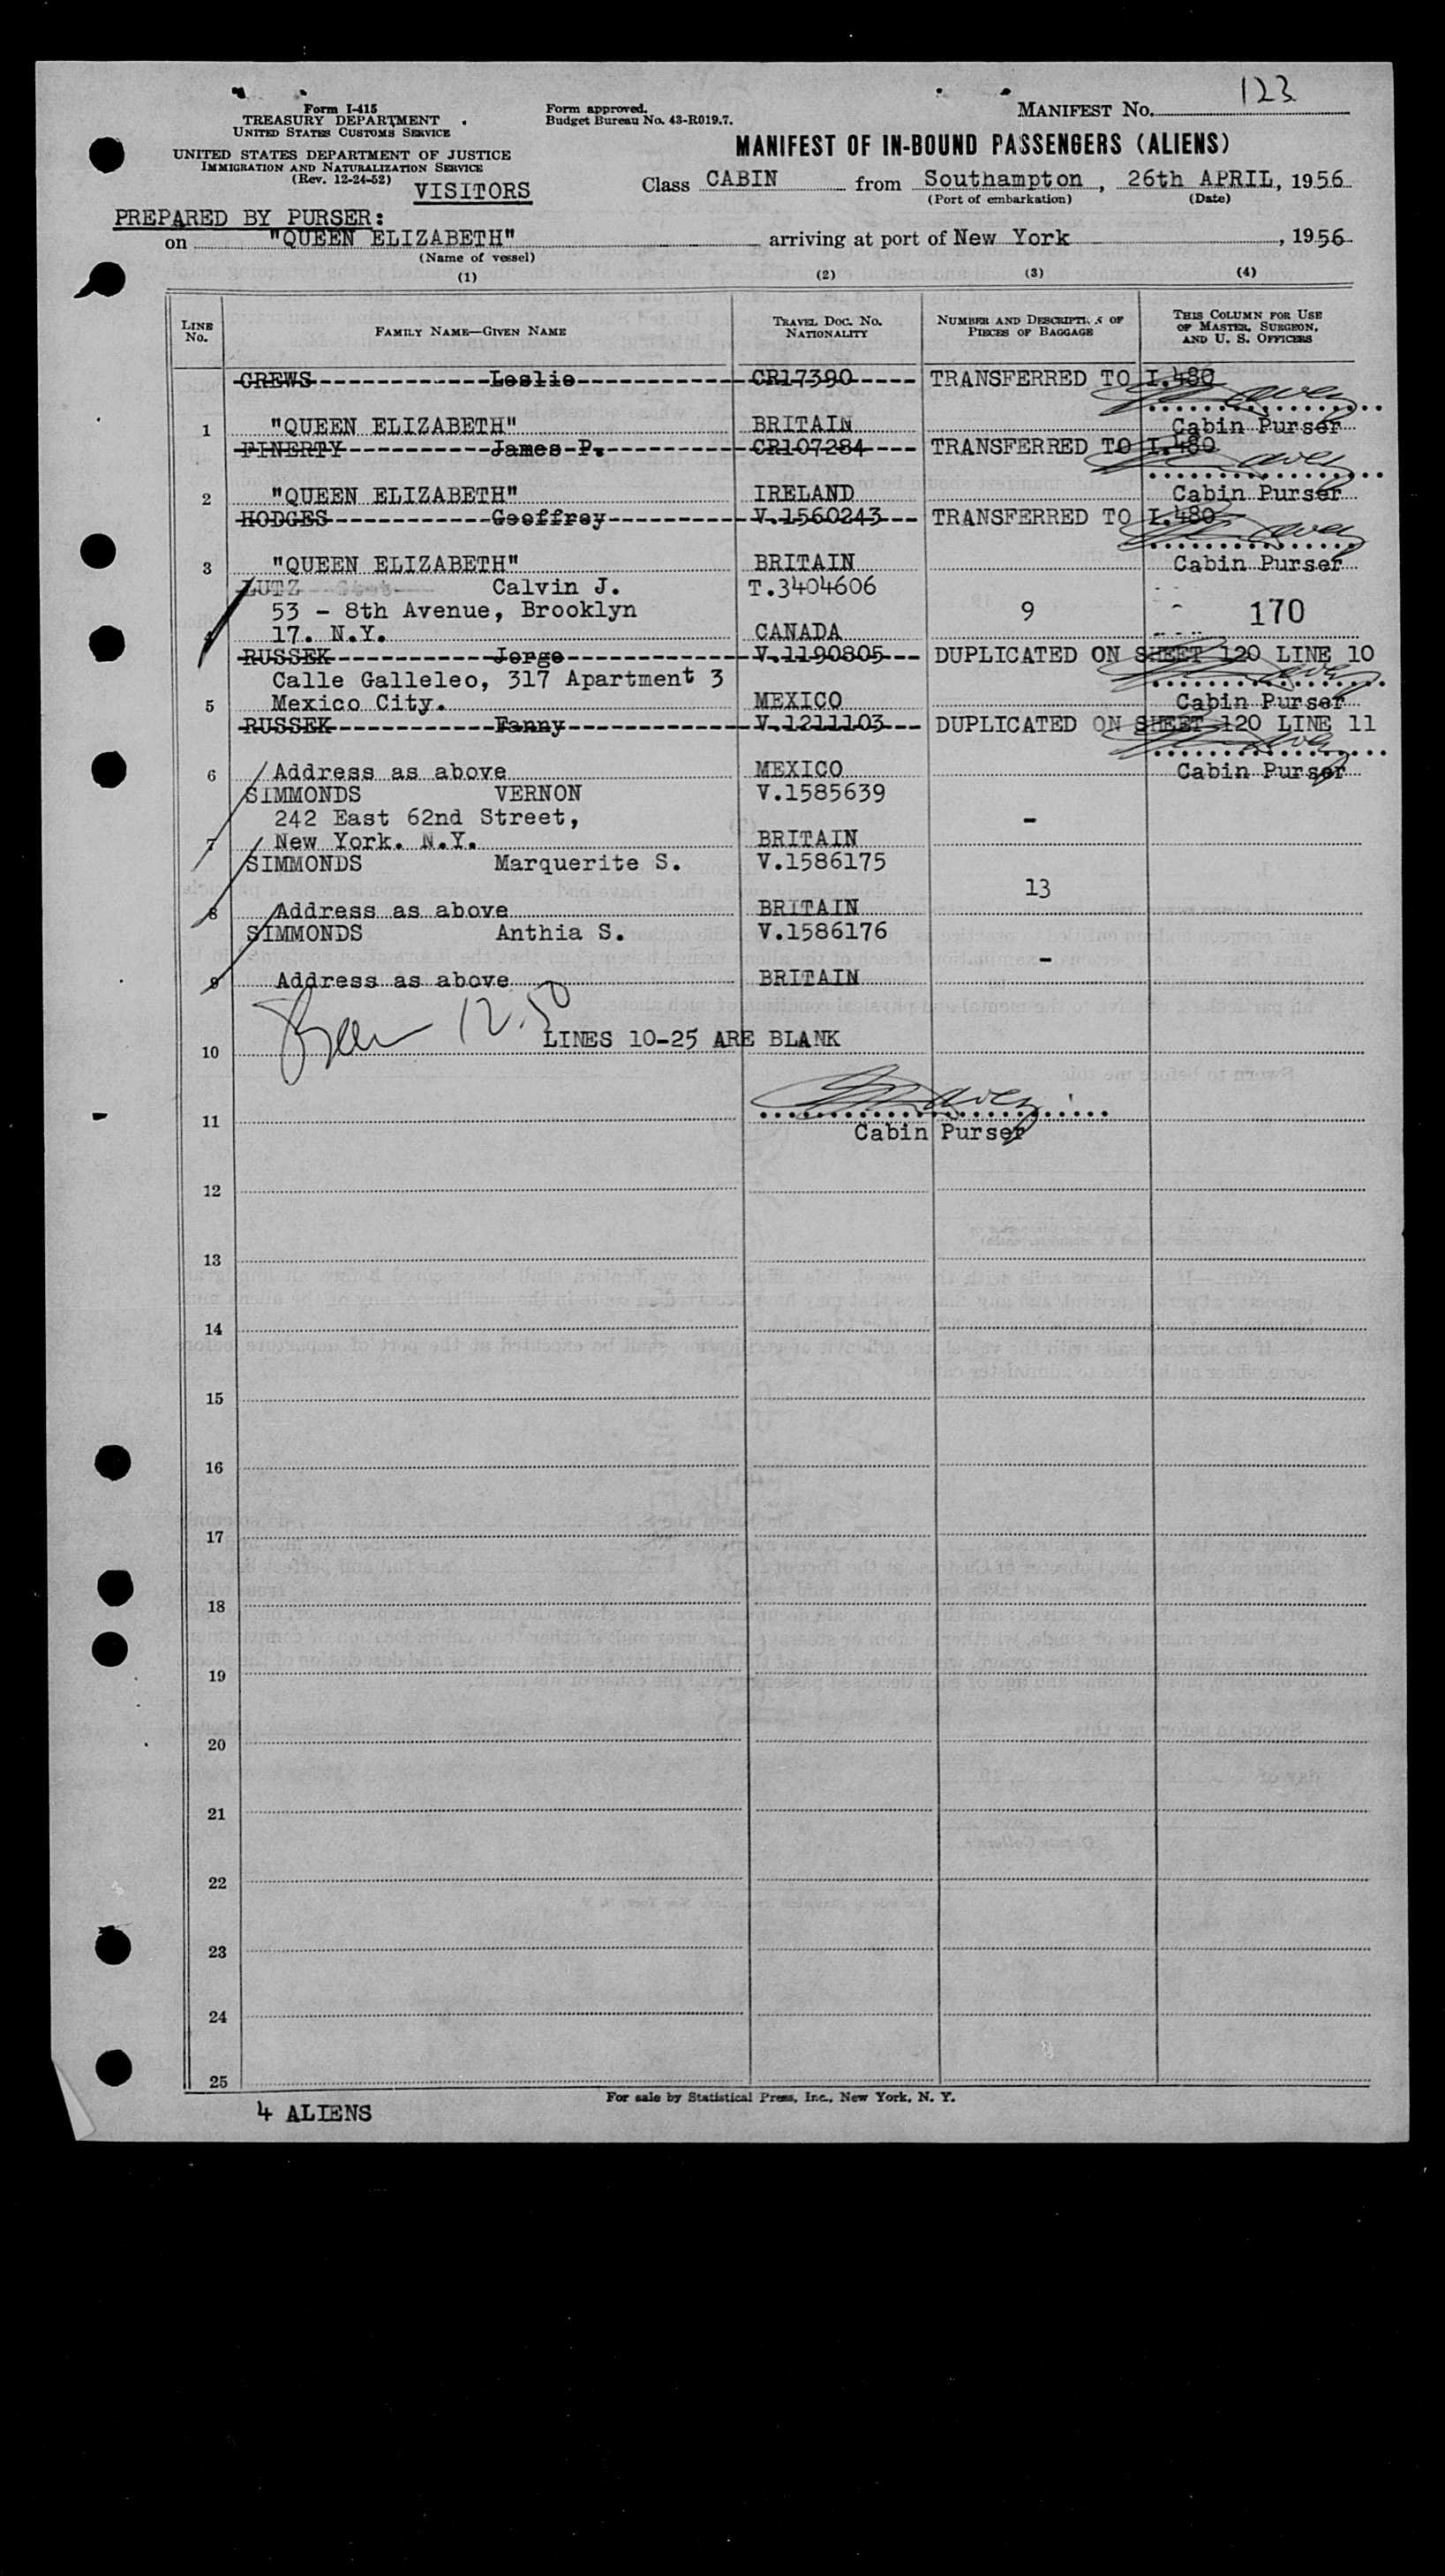 123
Form I-415
TREASURY DEPARTMENT
UNITED STATES CUSTOMS SERVICE
Form approved.
Budget Bureau No. 43-R019.7.
MANIFEST No.
UNITED STATES DEPARTMENT OF JUSTICE
IMMIGRATION AND NATURALIZATION SERVICE
(Rev. 12-24-52)
VISITORS
MANIFEST OF IN-BOUND PASSENGERS (ALIENS)
Class CABIN from Southampton, 26th APRIL, 1956
(Port of embarkation) (Date)
PREPARED BY PURSER:
on "QUEEN ELIZABETH" arriving at port of New York, 1956
(Name of vessel)
(1) (2) (3) (4)
LINE No. FAMILY NAME—GIVEN NAME TRAVEL DOC. NO. NATIONALITY NUMBER AND DESCRIPTION OF PIECES OF BAGGAGE THIS COLUMN FOR USE OF MASTER, SURGEON, AND U. S. OFFICERS
CREWS Leslie CR17390 TRANSFERRED TO I.480
1 "QUEEN ELIZABETH" BRITAIN Cabin Purser
FINERTY James P. CR107284 TRANSFERRED TO I.480
2 "QUEEN ELIZABETH" IRELAND Cabin Purser
HODGES Geoffrey V.1560243 TRANSFERRED TO I.480
3 "QUEEN ELIZABETH" BRITAIN Cabin Purser
LUTZ Calvin J. T.3404606
53 - 8th Avenue, Brooklyn 9 170
4 17. N.Y. CANADA
RUSSEK Jorge V.1190805 DUPLICATED ON SHEET 120 LINE 10
Calle Galleleo, 317 Apartment 3
5 Mexico City. MEXICO Cabin Purser
RUSSEK Fanny V.1211103 DUPLICATED ON SHEET 120 LINE 11
6 Address as above MEXICO Cabin Purser
SIMMONDS VERNON V.1585639
242 East 62nd Street, -
7 New York. N.Y. BRITAIN
SIMMONDS Marquerite S. V.1586175
13
8 Address as above BRITAIN
SIMMONDS Anthia S. V.1586176
-
9 Address as above BRITAIN
12.50
LINES 10-25 ARE BLANK
10
11
Cabin Purser
12
13
14
15
16
17
18
19
20
21
22
23
24
25
For sale by Statistical Press, Inc., New York, N. Y.
4 ALIENS